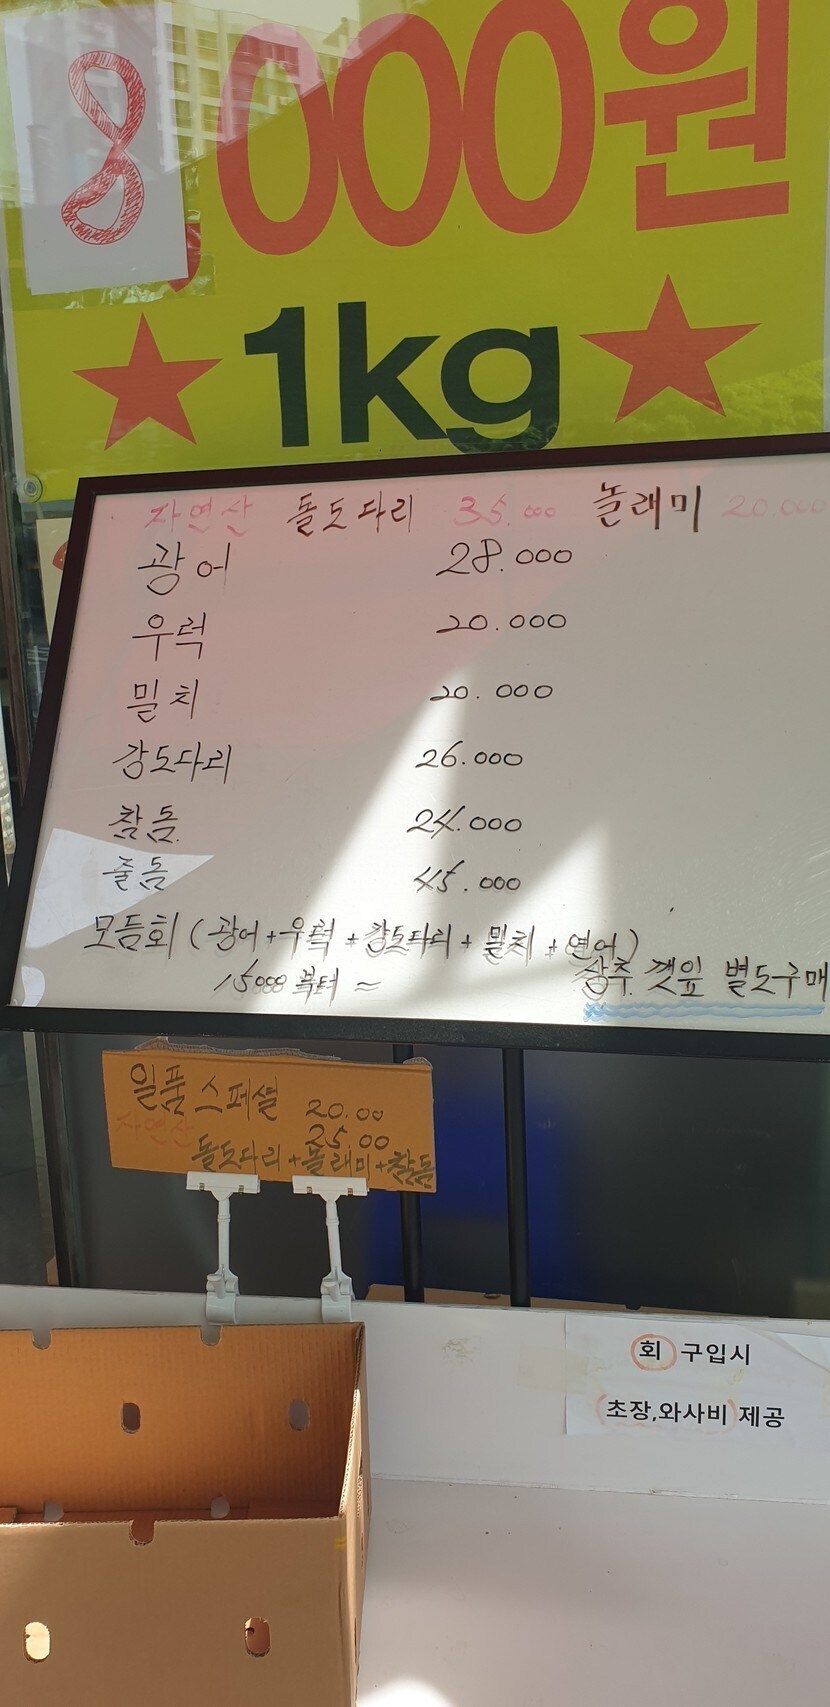 8,000원
★1kg★
자연산 돌도다리 35.000 놀래미 20.000
광어 28.000
우럭 20.000
밀치 20.000
강도다리 26.000
참돔 24.000
줄돔 45.000
모듬회 (광어+우럭+강도다리+밀치+연어)
15000 부터 ~ 상추. 깻잎 별도구매
일품 스페셜 20.00
자연산 25.00
돌도다리+놀래미+참돔
회 구입시
초장,와사비 제공